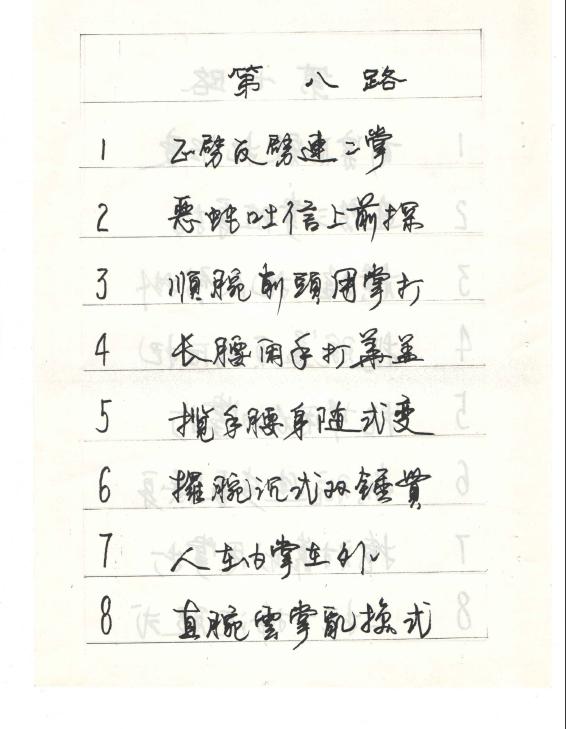 第八路
1 正劈反劈連二掌
2 惡蛇吐信上前探
3 順腕削頭用掌打
4 长腰闭手打華盖
5 攬手腰身随式变
6 擢腕沉式双錘貫
7 人在内掌在外
8 直腕雲掌乱換式